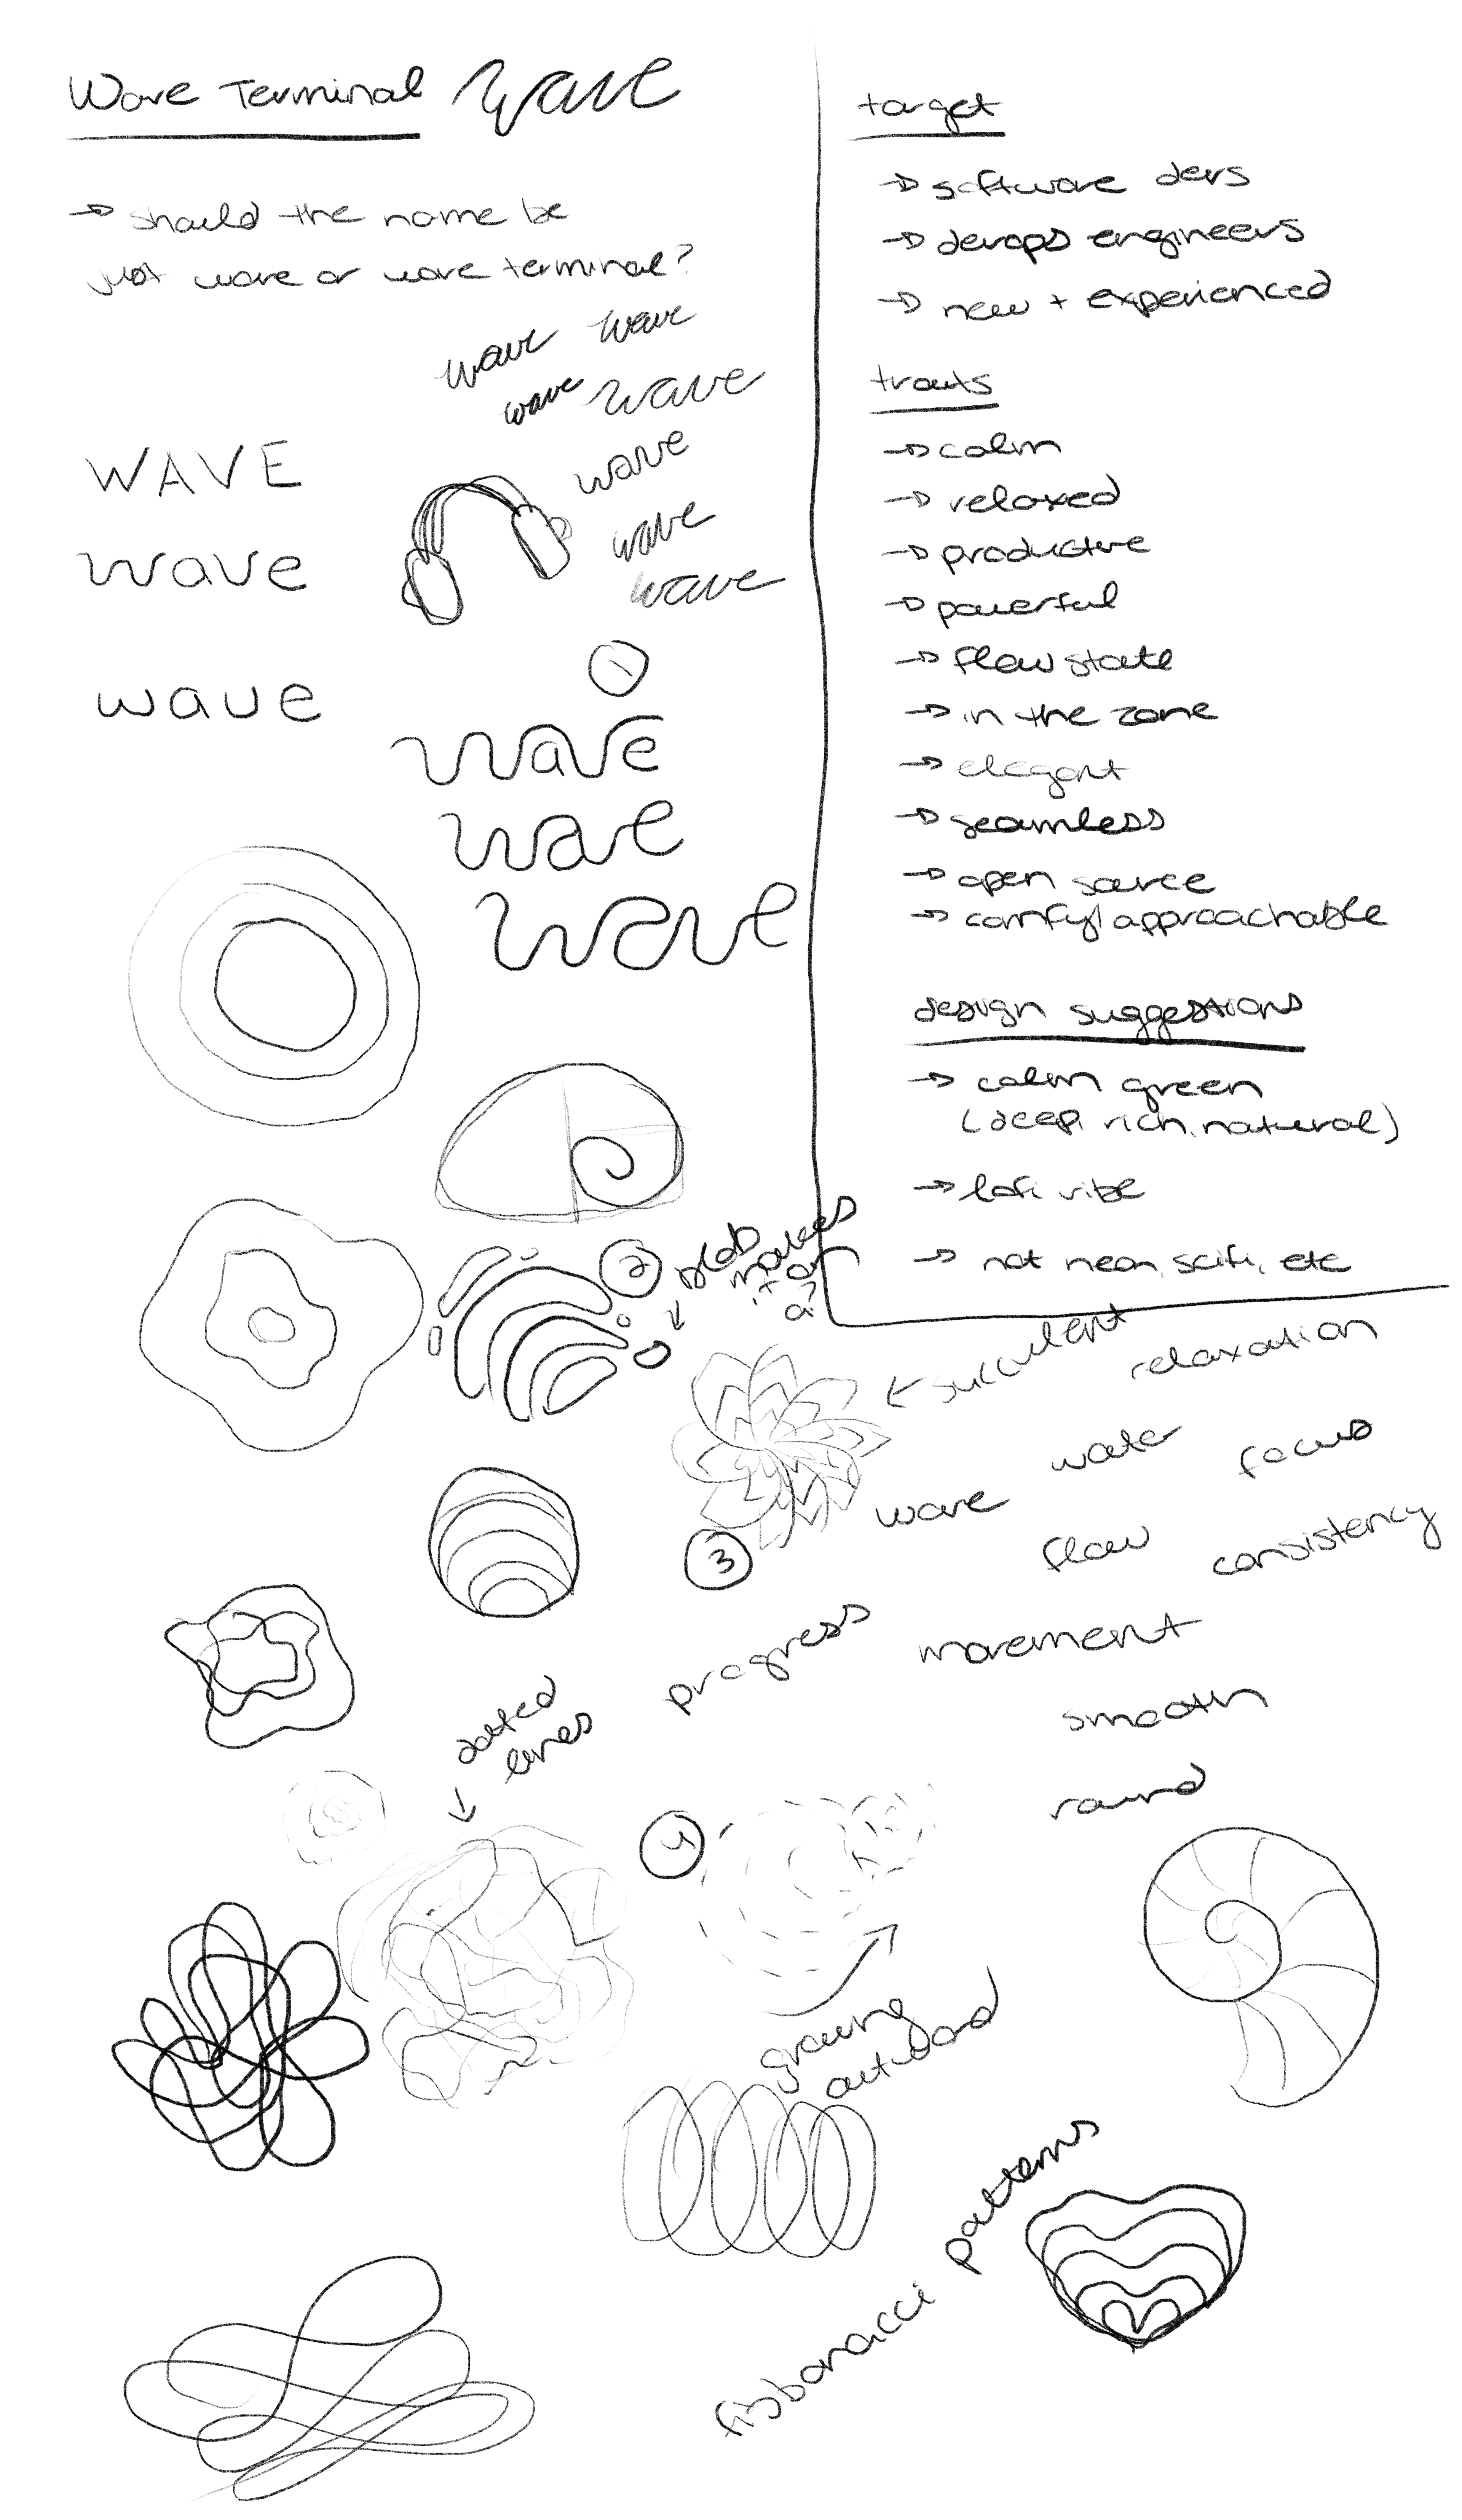 Wave Terminal wave
→ should the name be
just wave or wave terminal?
wave wave
wave wave
WAVE
wave
wave
wave
wave
wave
1
wave
wave
wave
target
→ software devs
→ devops engineers
→ new + experienced
traits
→ calm
→ relaxed
→ productive
→ powerful
→ flow state
→ in the zone
→ elegant
→ seamless
→ open source
→ comfy/approachable
design suggestions
→ calm green
(deep, rich, natural)
→ lofi vibe
→ not neon, scifi, etc
2
blob
makes
it an
a?
← succulent
relaxation
water
focus
wave
flow
consistency
3
progress
movement
smooth
round
dotted
lines
4
growing
outward
fibbonacci patterns